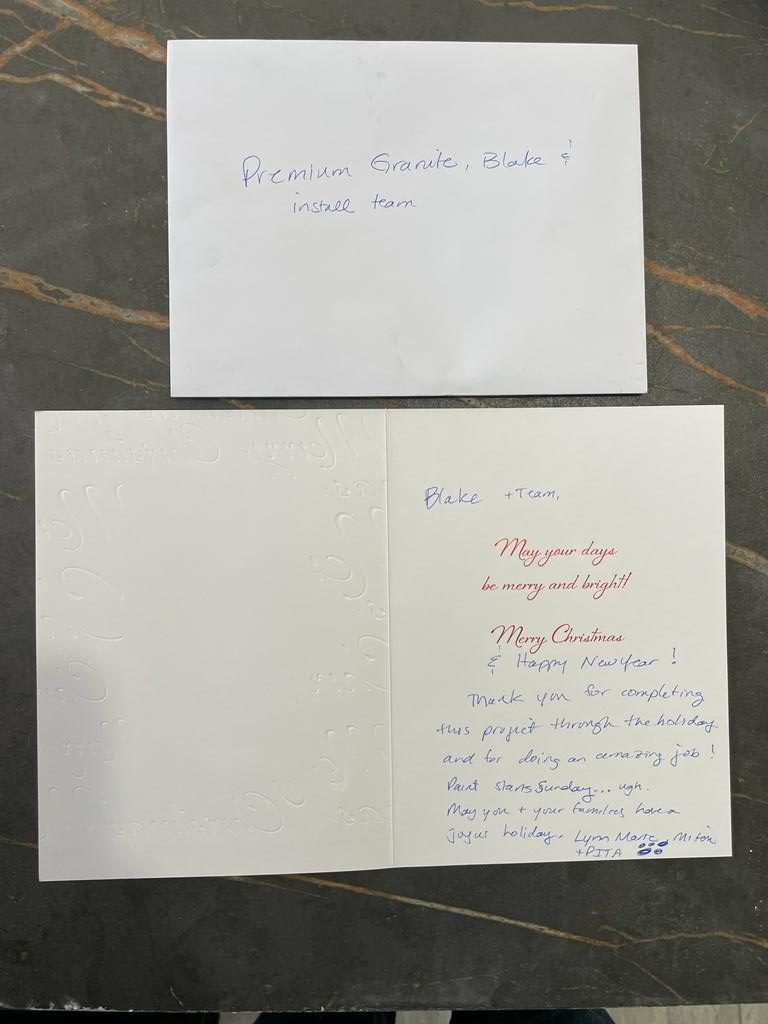 Premium Granite, Blake &
install team
Blake + Team,
May your days
be merry and bright!
Merry Christmas
& Happy New Year!
Thank you for completing
this project through the holiday
and for doing an amazing job!
Paint starts Sunday... ugh.
May you + your families have a
joyus holiday. Lynn
+ PITA